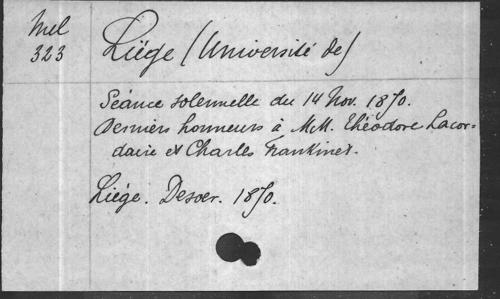 Mel
323
Liége (Université de)
Séance solennelle du 14 Nov. 1870.
Derniers honneurs à M.M. Théodore Lacor-
daire et Charles Frankinet.
Liége. Desoer. 1870.